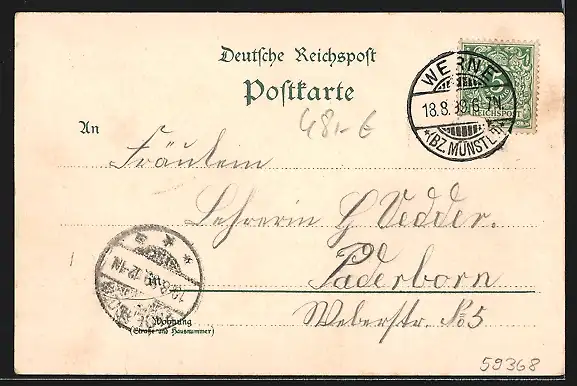 Deutsche Reichspost
Postkarte
WERNE
18.8.99.6-7N.
*(BZ. MÜNSTER)*
5
REICHSPOST
48,- €
An
Fräulein
Lehrerin H Vedder.
Paderborn
Weberstr. No 5
12-1N
Wohnung
(Straße und Hausnummer)
59368